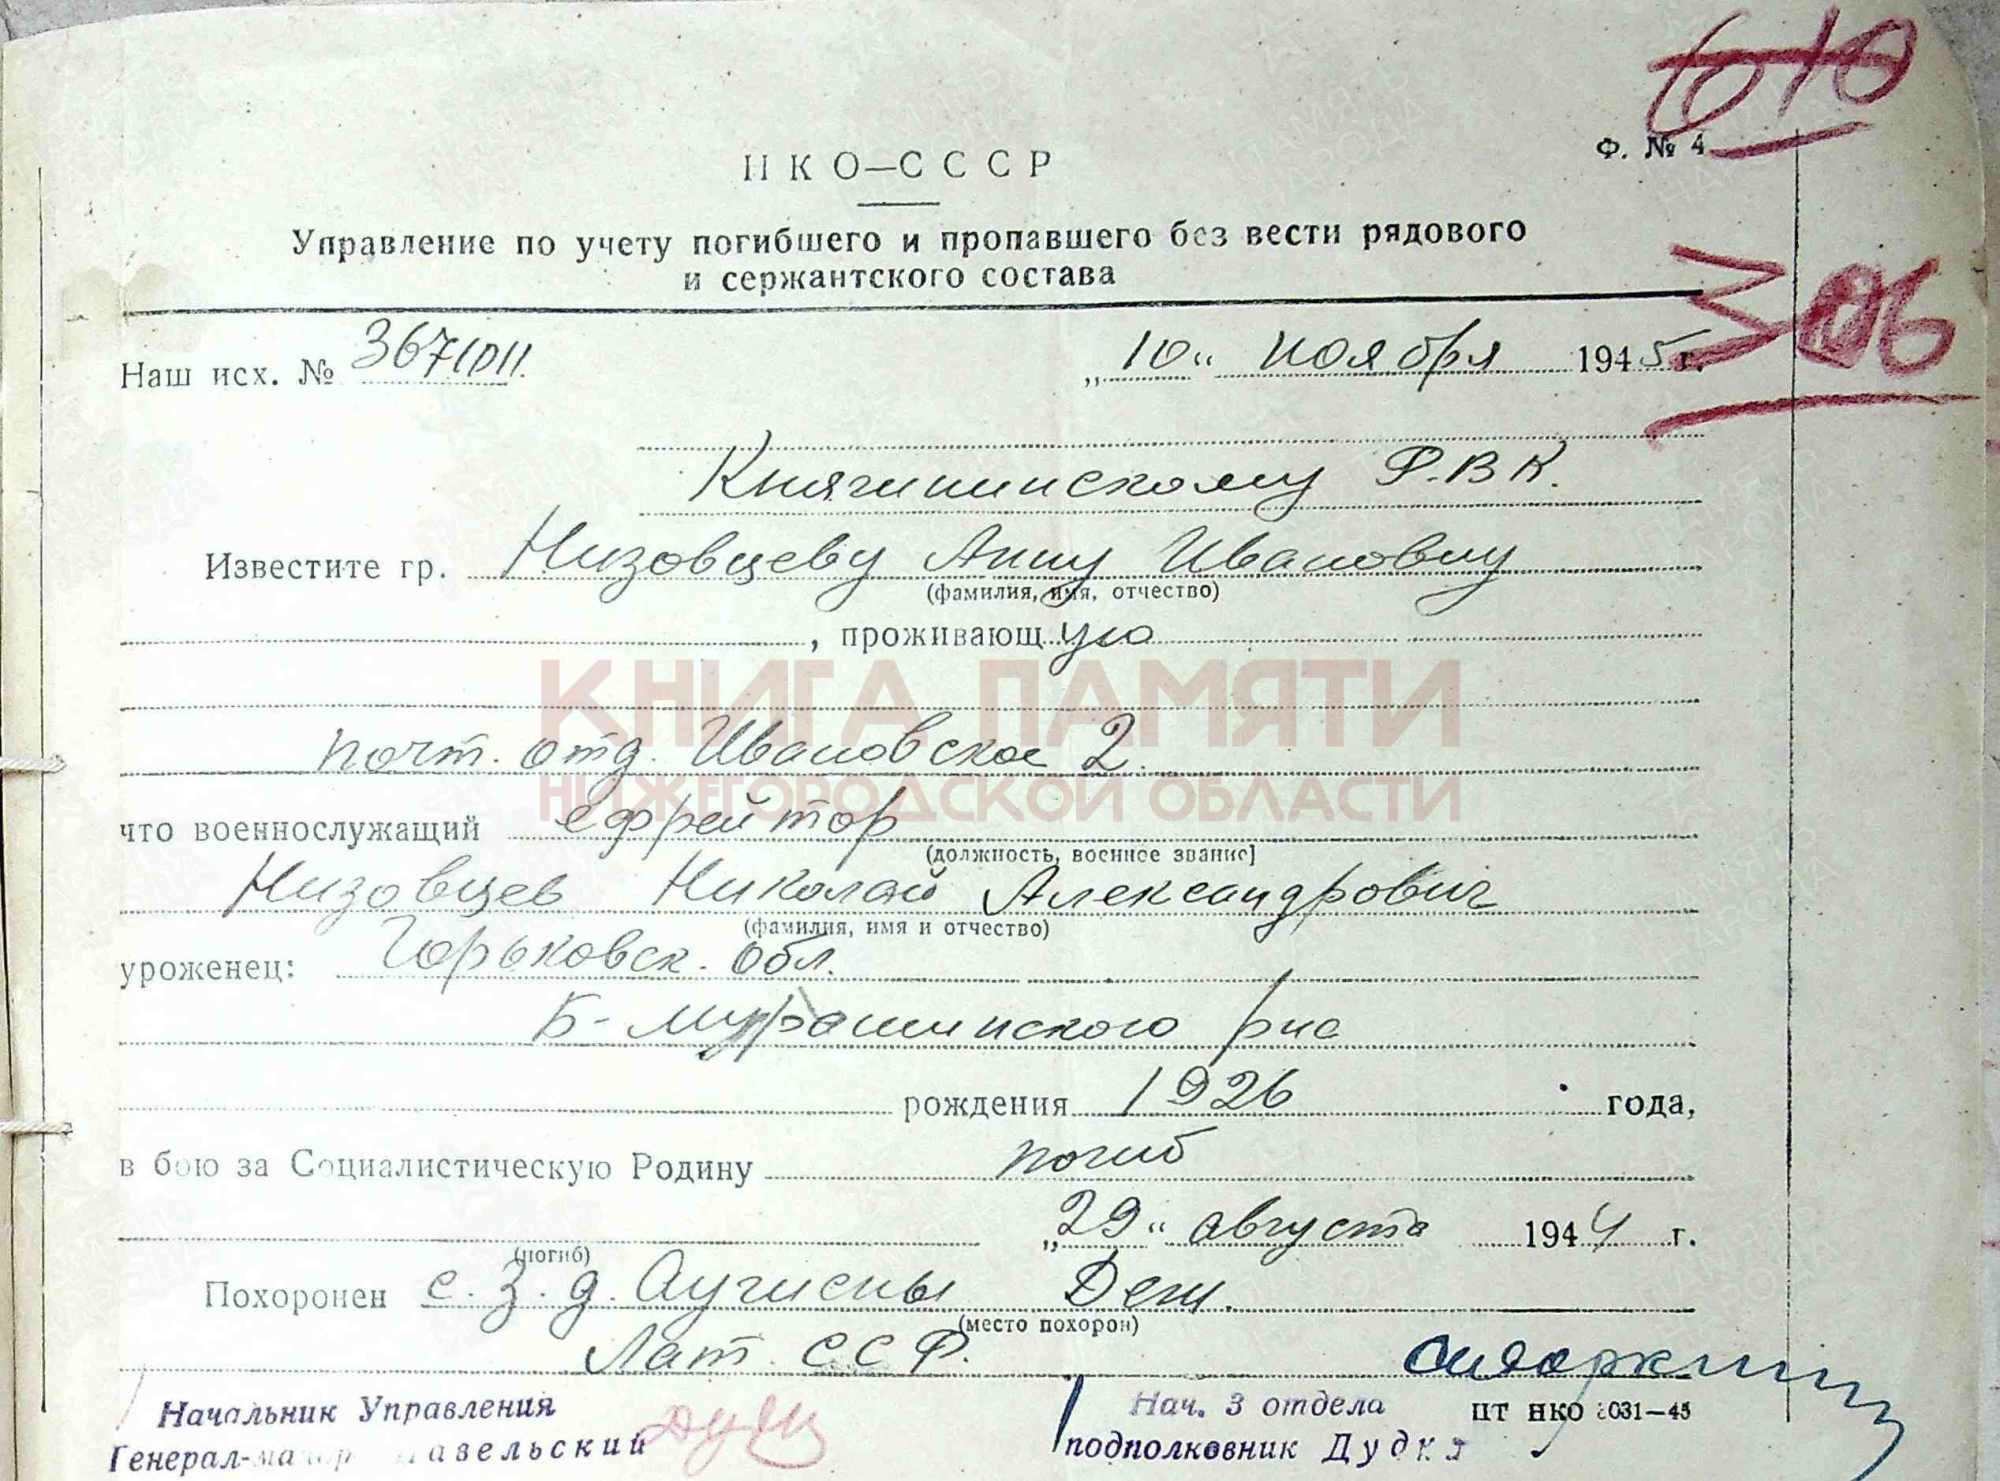 610
Ф. № 4
НКО—СССР
Управление по учету погибшего и пропавшего без вести рядового
и сержантского состава
306
Наш исх. №
„10“ ноября 1945 г.
Княгининскому Р.В.К.
Известите гр. Низовцеву Анну Ивановну
(фамилия, имя, отчество)
, проживающую
КНИГА ПАМЯТИ
почт. отд. Ивановское 2.
НИЖЕГОРОДСКОЙ ОБЛАСТИ
что военнослужащий ефрейтор
(должность, военное звание]
Низовцев Николай Александрович
(фамилия, имя и отчество)
уроженец: Горьковск. обл.
Б-Мурашинского р-на
рождения 1926 года,
в бою за Социалистическую Родину погиб
„29“ августа 1944 г.
(погиб)
Похоронен с. з. д.
(место похорон)
Лат. ССР.
Начальник Управления
Нач. 3 отдела
цт нко 2031—45
Генерал-майор
подполковник Дудка